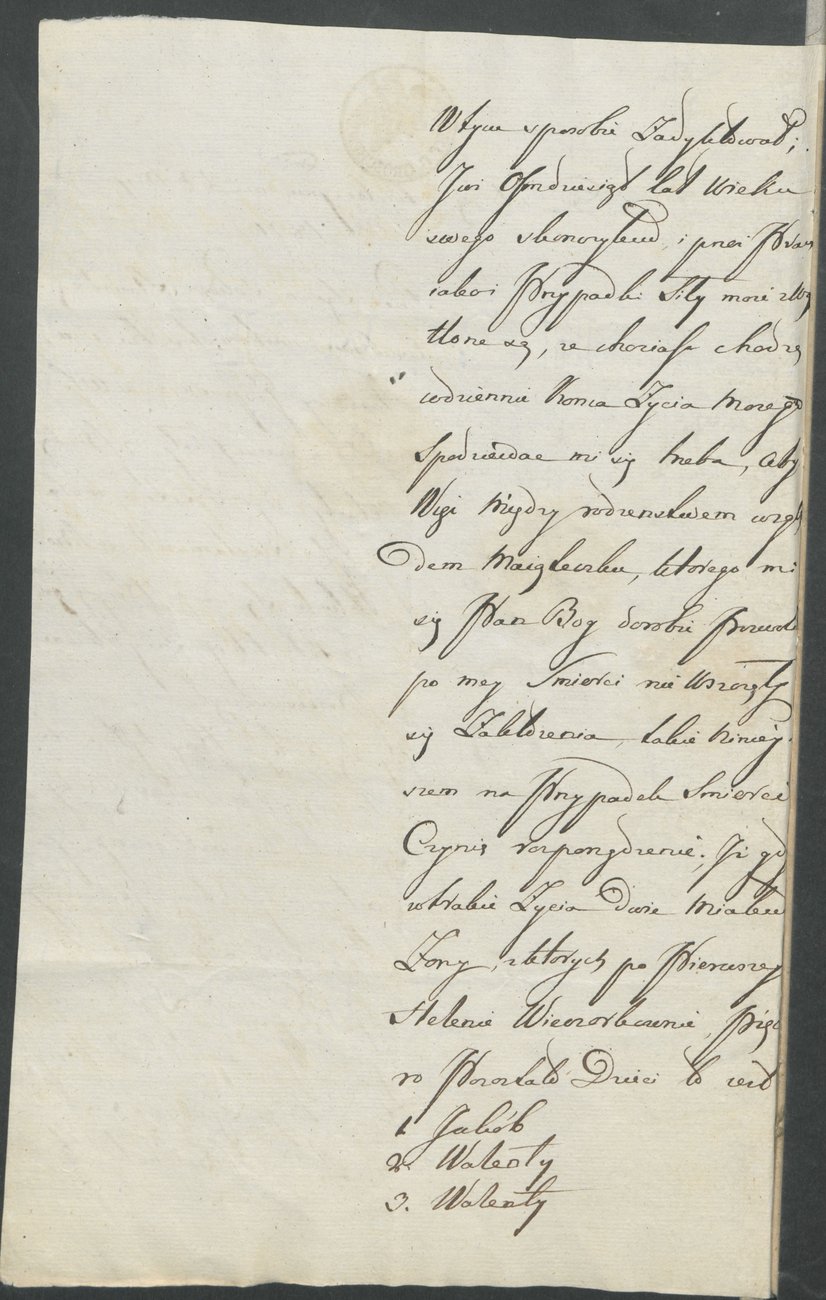 W tym sposobie Zadyktował;
Jusz Osmdziesiąt lat Wieku
swego skonczyłem, i przez Roz
Przypadki Siły moie zwą
tlone są, ze chociasz chodzę
codziennie konca Zycia moiego
Spodziewac mi się trzeba, aby
Więc między rodzenstwem wzglę
dem Maiąteczku, ktorego mi
się Pan Bog dorobić Pozwolił
po mey Smierci nie wszczęły
się Zakłocenia, takie niniey
szem na Przypadek Smierci
Czynię rozporządzenie; Ji gdy
w trakcie Zycia dwie miałem
Zony, z ktorych po Pierwszey
Helenie Wieczorkownie, Pięc
ro Pozostało Dzieci to iest
1. Jakób
2. Walenty
3. Walenty